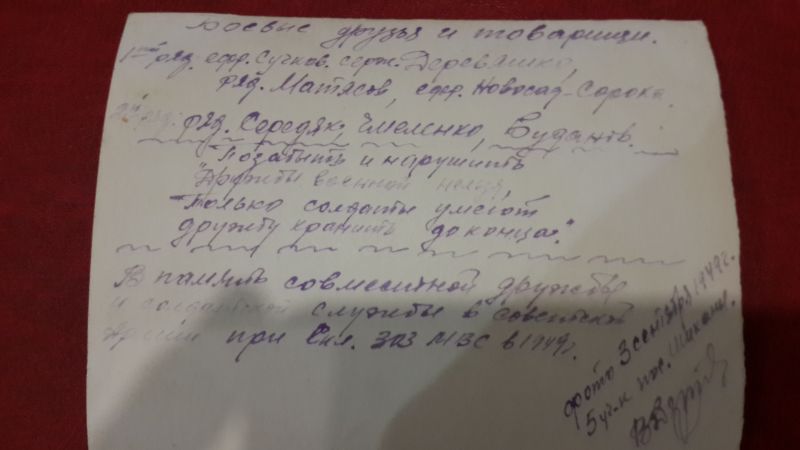 Боевые друзья и товарищи.
1ый ряд. ефр. Сучков. серж. Деревяшко,
ряд. Матясов, ефр. Новосад-Сорока.
2й ряд. ряд. Середяк, Чмеленко, Буданов.
"Позабыть и нарушить
"Дружбы военной нельзя,
"Только солдаты умеют
дружбу хранить до конца."
В память совместной дружбы
и солдатской службы в советской
Армии при 303 МВС в 1949г.
фото 3 сентября 1949г.
5 уч-к пос.